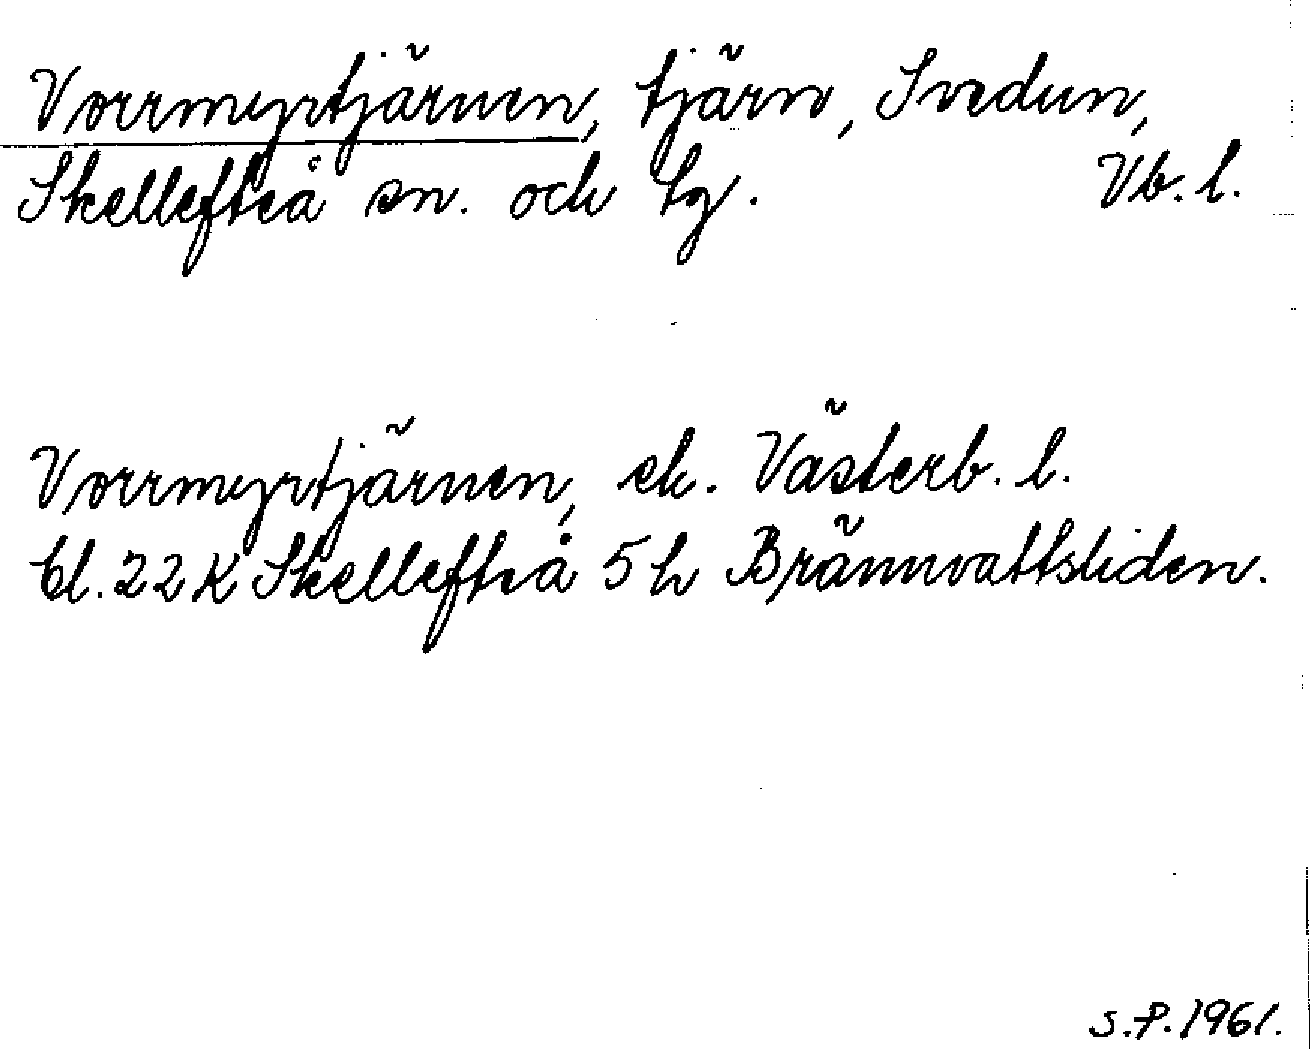 Vorrmyrtjärnen, tjärn, Svedun,
Skellefteå sn. och tg. Vb. l.
Vorrmyrtjärnen, ek. Västerb. l.
bl. 22 K Skellefteå 5 h Brännvattsliden.
S.P. 1961.